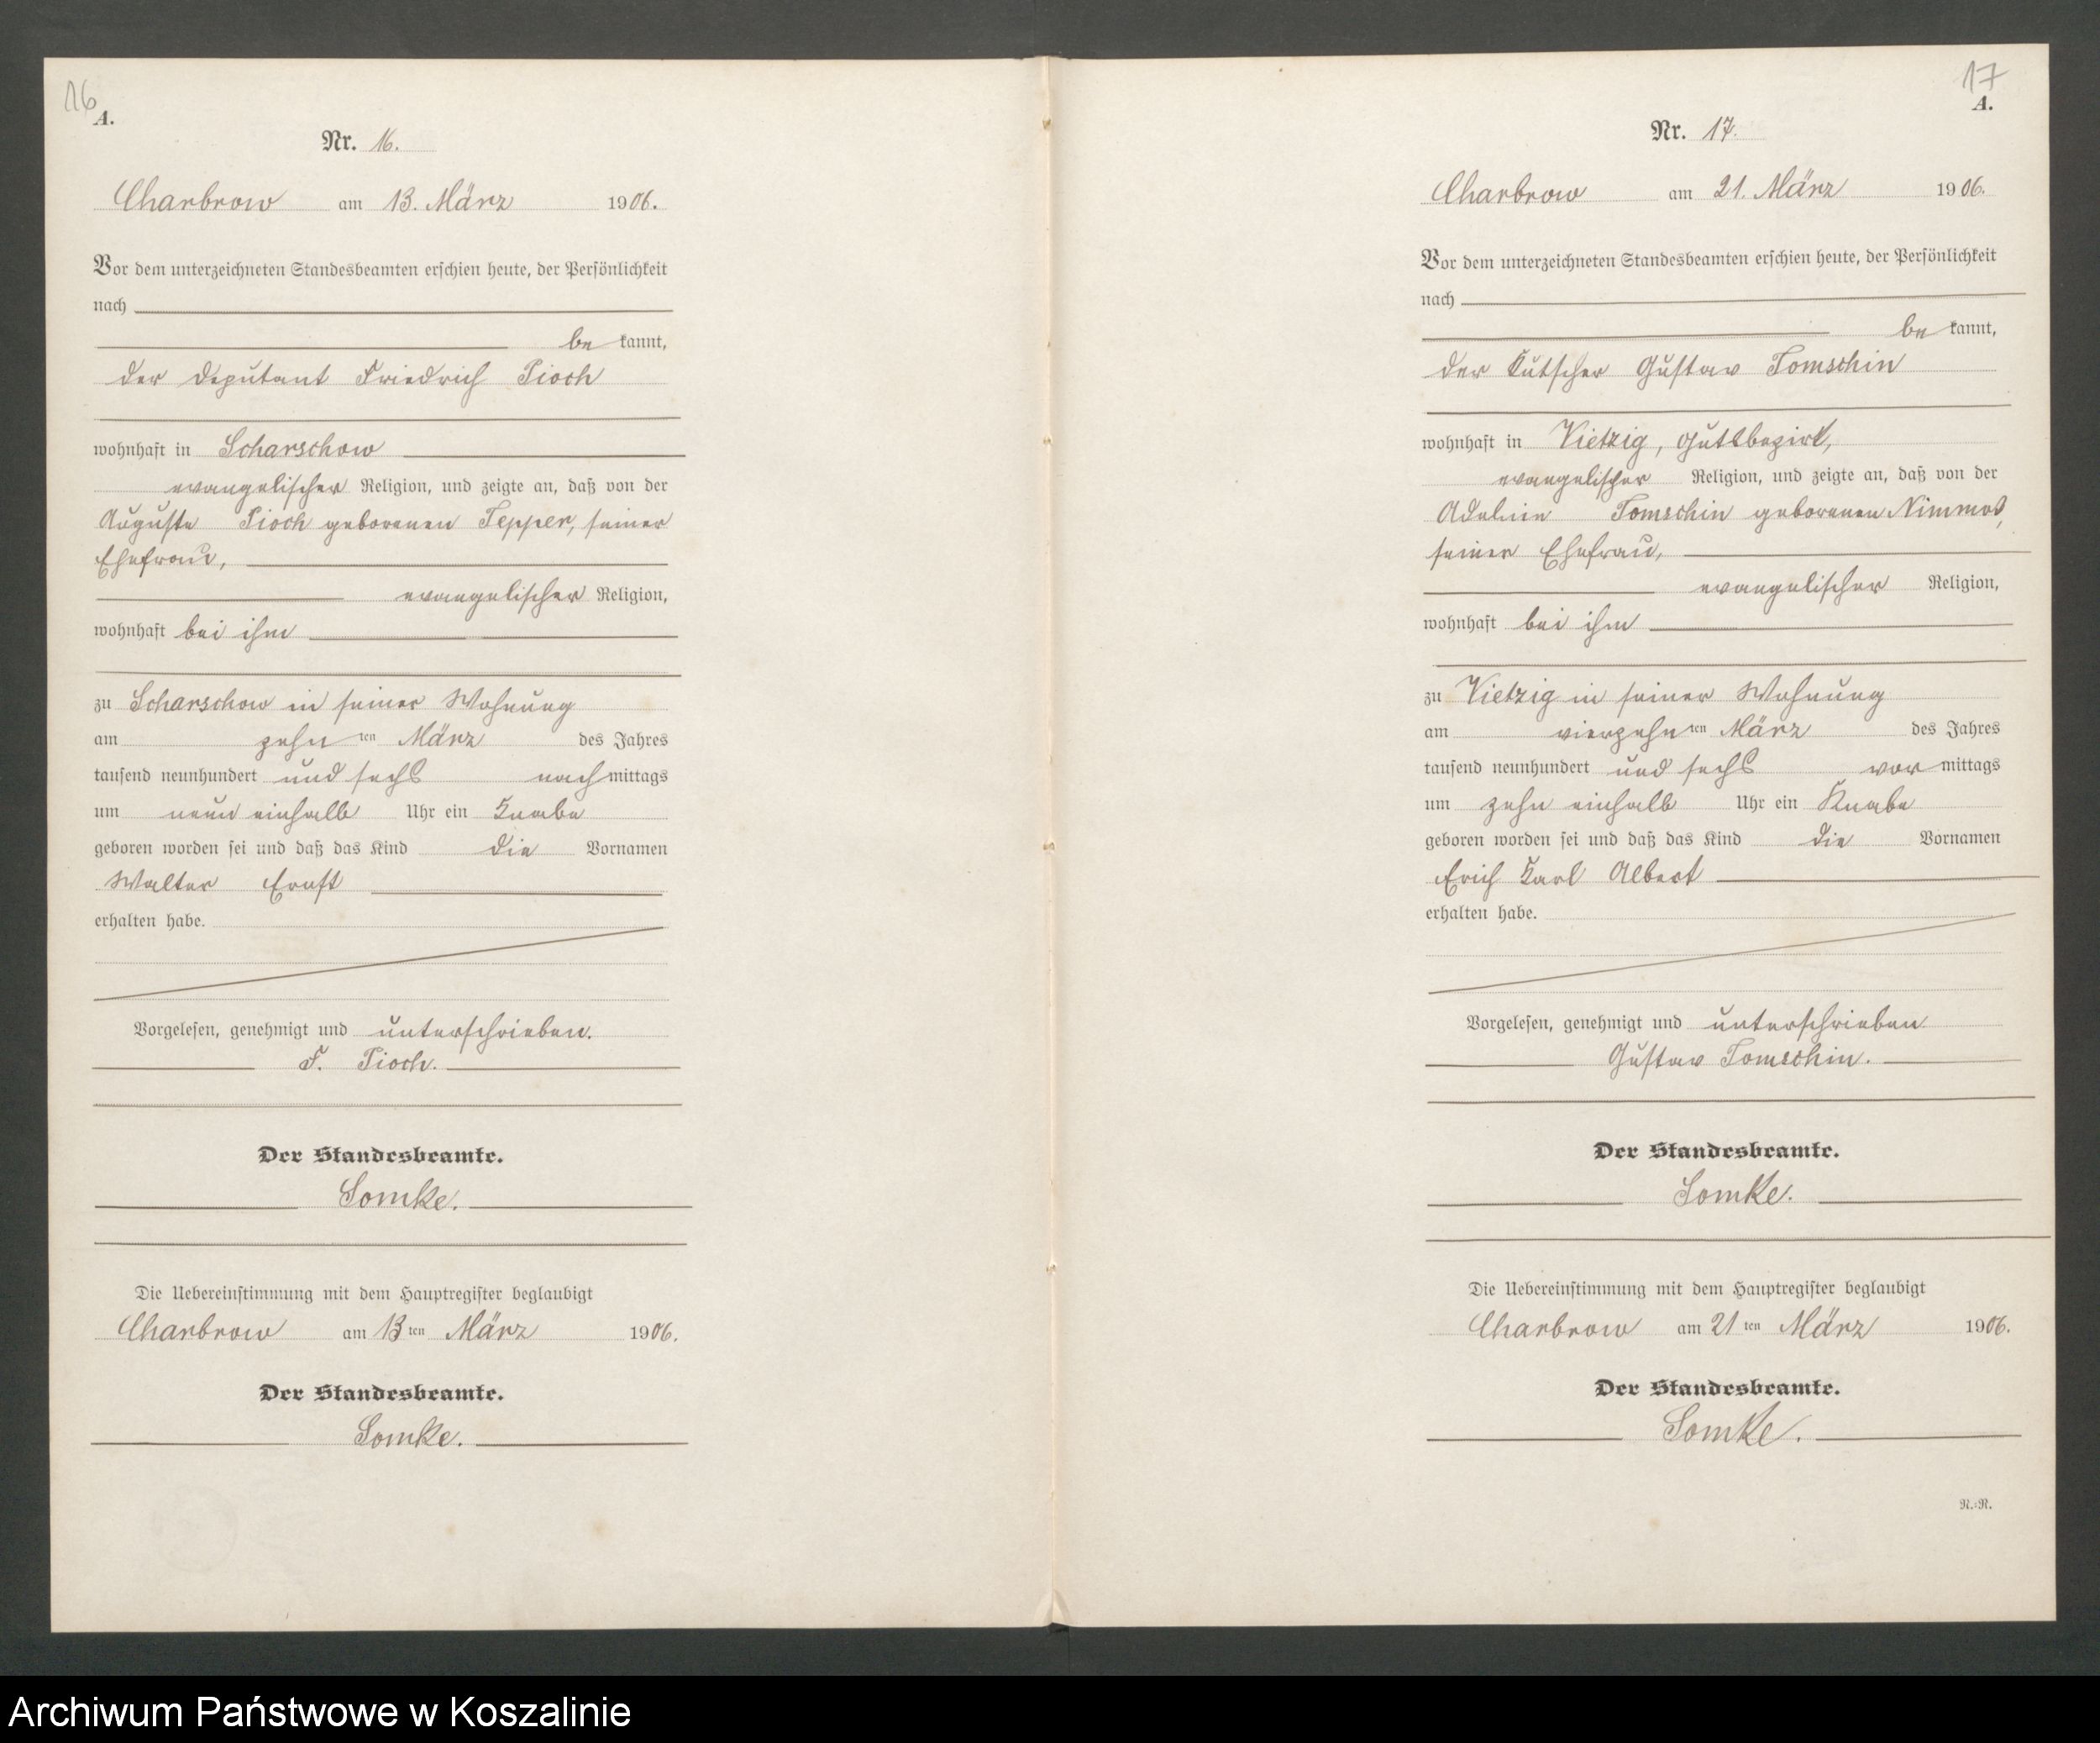 16
A.
Nr. 16.
Charbrow am 13. März 1906.
Vor dem unterzeichneten Standesbeamten erschien heute, der Persönlichkeit
nach
be kannt,
der Deputant Friedrich Pioch
wohnhaft in Scharschow
evangelischer Religion, und zeigte an, daß von der
Auguste Pioch geborenen Tepper, seiner
Ehefrau,
evangelischer Religion,
wohnhaft bei ihm
zu Scharschow in seiner Wohnung
am zehn ten März des Jahres
tausend neunhundert und sechs nach mittags
um neun einhalb Uhr ein Knabe
geboren worden sei und daß das Kind die Vornamen
Walter Ernst
erhalten habe.
Vorgelesen, genehmigt und unterschrieben.
F. Pioch.
Der Standesbeamte.
Somke.
Die Uebereinstimmung mit dem Hauptregister beglaubigt
Charbrow am 13 ten März 1906.
Der Standesbeamte.
Somke.
17
A.
Nr. 17.
Charbrow am 21. März 1906.
Vor dem unterzeichneten Standesbeamten erschien heute, der Persönlichkeit
nach
be kannt,
der Kutscher Gustav Tomschin
wohnhaft in Vietzig, Gutsbezirk,
evangelischer Religion, und zeigte an, daß von der
Adeline Tomschin geborenen
seiner Ehefrau,
evangelischer Religion,
wohnhaft bei ihm
zu Vietzig in seiner Wohnung
am vierzehn ten März des Jahres
tausend neunhundert und sechs vor mittags
um zehn einhalb Uhr ein Knabe
geboren worden sei und daß das Kind die Vornamen
Erich Karl Albert
erhalten habe.
Vorgelesen, genehmigt und unterschrieben
Gustav Tomschin.
Der Standesbeamte.
Somke.
Die Uebereinstimmung mit dem Hauptregister beglaubigt
Charbrow am 21 ten März 1906.
Der Standesbeamte.
Somke.
R.:R.
Archiwum Państwowe w Koszalinie